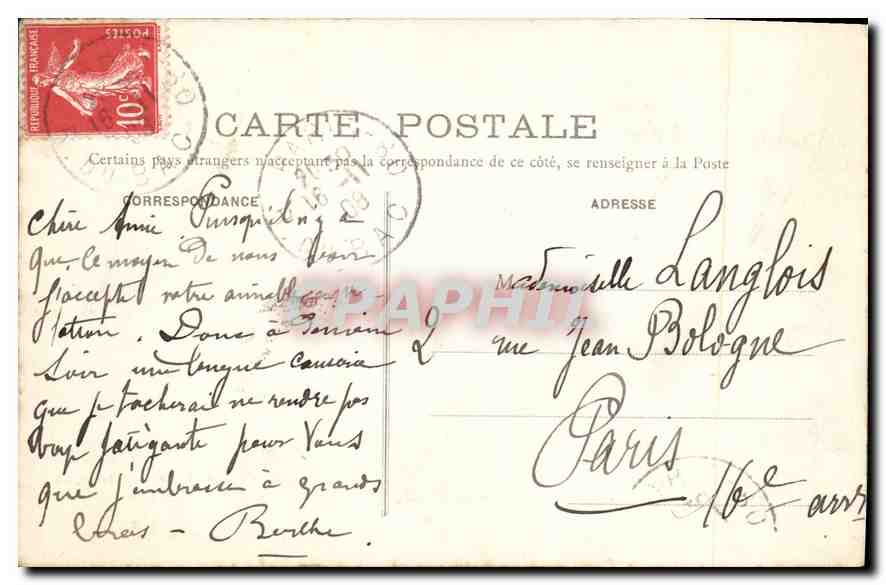 POSTES
REPUBLIQUE FRANÇAISE
10c
CARTE POSTALE
Certains pays étrangers n'acceptent pas la correspondance de ce côté, se renseigner à la Poste
CORRESPONDANCE
ADRESSE
Chère Amie Puisqu'il n'y a
que le moyen de vous avoir
j'accepte votre aimable
Donc à demain
soir une longue causerie
que je tacherai ne rendre pas
trop fatigante pour Vous
que j'embrasse à grands
bras - Berthe
Mademoiselle Langlois
2 rue Jean Bologne
Paris
16e arrt